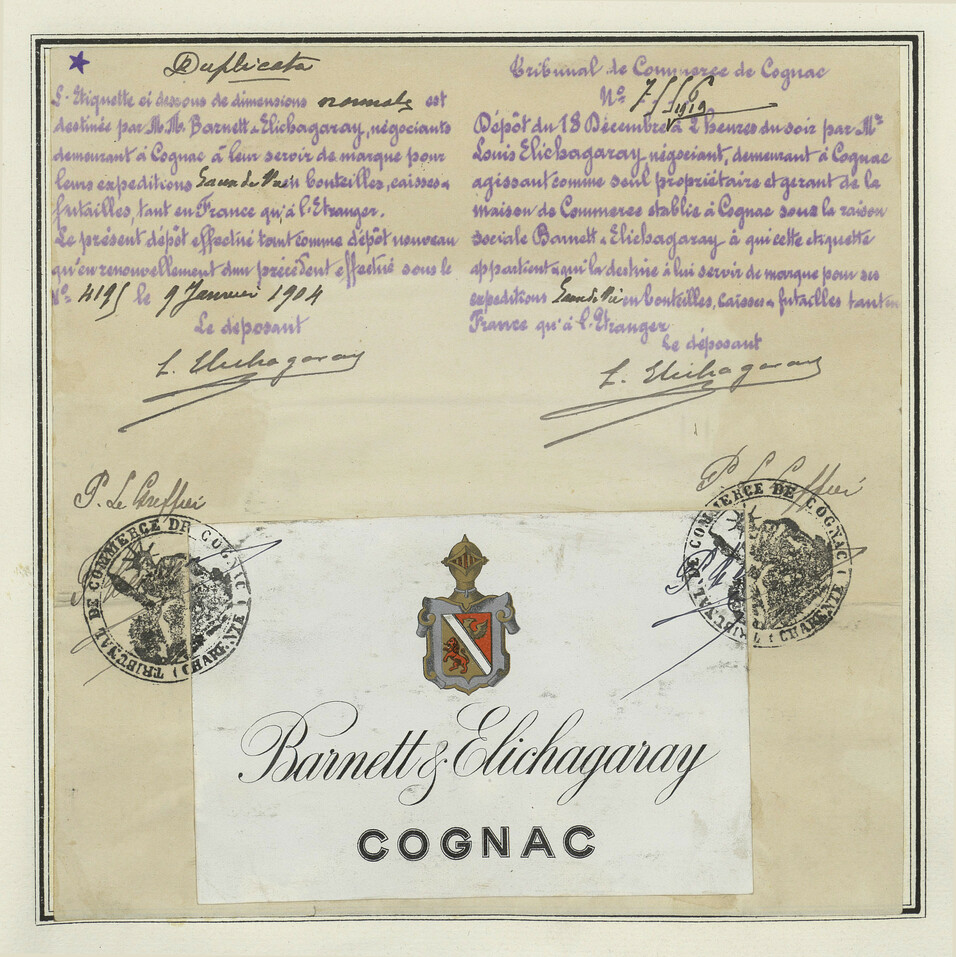 Duplicata
L'Etiquette ci dessous de dimensions normales est
destinée par M.M. Barnett & Elichagaray, négociants
demeurant à Cognac à leur servir de marque pour
leurs expeditions Eaux de Vie en bouteilles, caisses &
futailles, tant en France qu'à l'Etranger.
Le présent dépôt effectué tant comme dépôt nouveau
qu'en renouvellement d'un précédent effectué sous le
No. 4195 le 9 Janvier 1904
Le déposant
L. Elichagaray
P. Le Greffier
Tribunal de Commerce de Cognac
No
1919
Dépôt du 18 Décembre à 2 heures du soir par Mr
Louis Elichagaray négociant, demeurant à Cognac
agissant comme seul propriétaire et gerant de la
maison de Commerce etablie à Cognac sous la raison
sociale Barnett & Elichagaray à qui cette etiquette
appartient & qui la destine à lui servir de marque pour ses
expeditions Eaux de Vie en bouteilles, caisses & futailles tant en
France qu'à l'Etranger
Le déposant
L. Elichagaray
P. Le Greffier
TRIBUNAL DE COMMERCE DE COGNAC (CHARENTE)
TRIBUNAL DE COMMERCE DE COGNAC (CHARENTE)
Barnett & Elichagaray
COGNAC